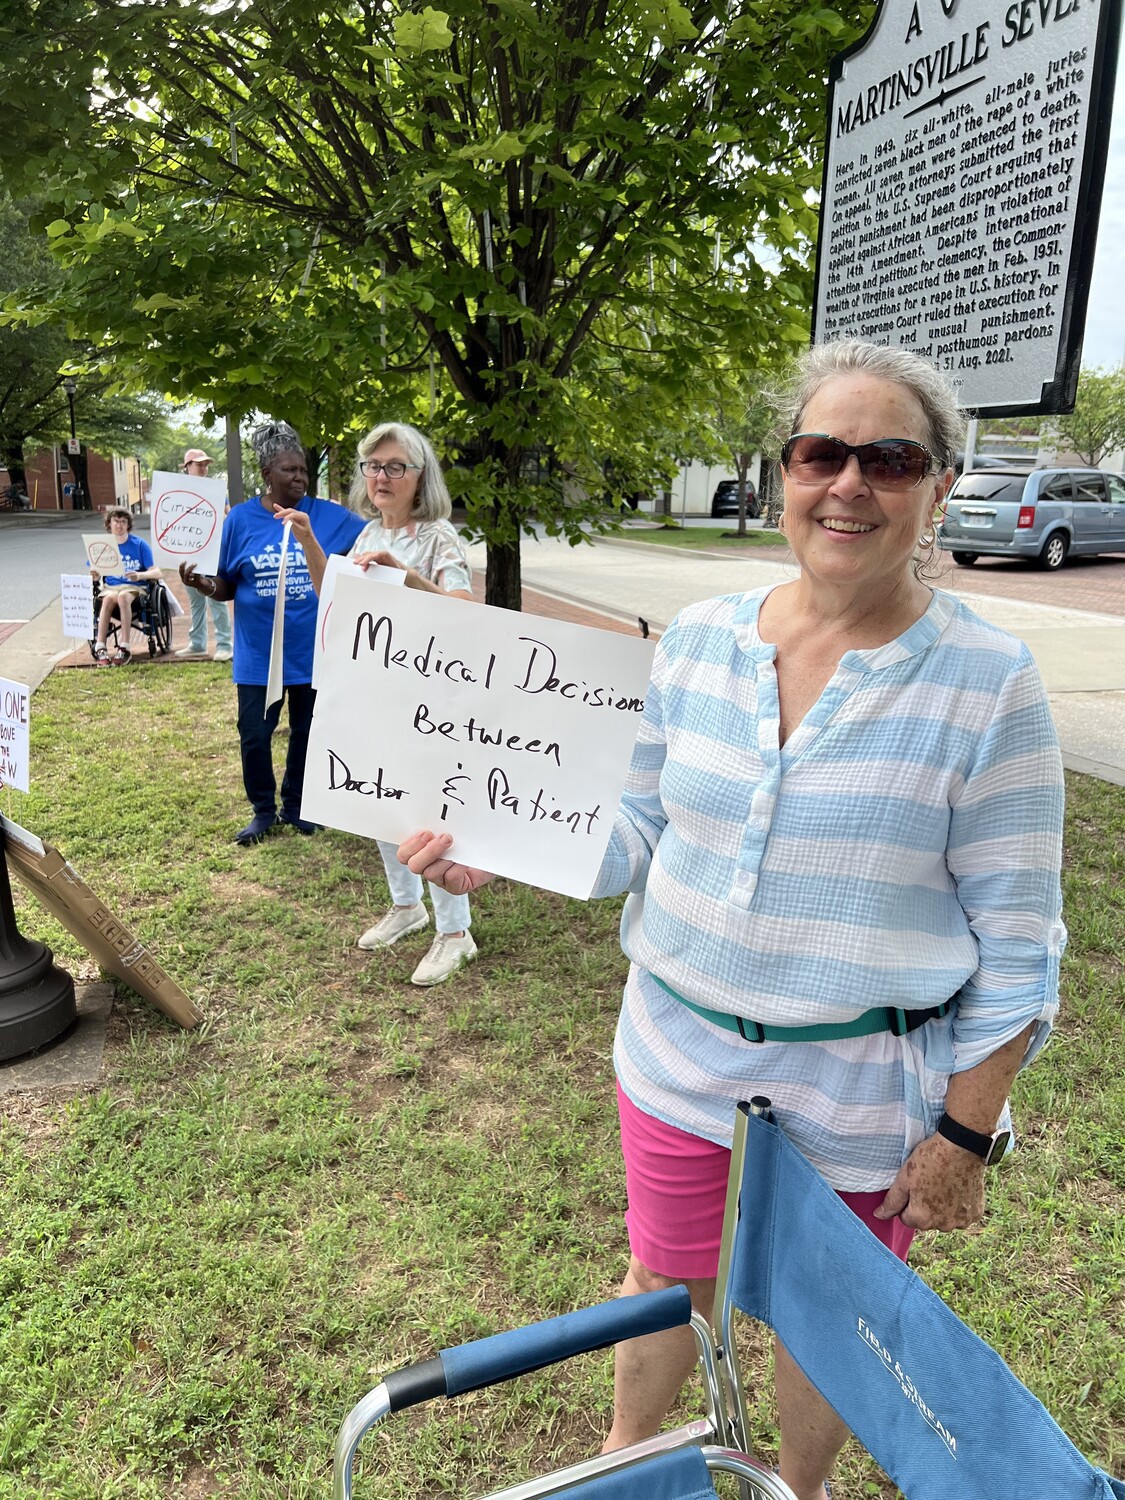 MARTINSVILLE SEVEN
Here in 1949, six all-white, all-male juries
convicted seven black men of the rape of a white
woman. All seven men were sentenced to death.
On appeal, NAACP attorneys submitted the first
petition to the U.S. Supreme Court arguing that
capital punishment had been disproportionately
applied against African Americans in violation of
the 14th Amendment. Despite international
attention and petitions for clemency, the Common-
wealth of Virginia executed the men in Feb. 1951,
the most executions for a rape in U.S. history. In
the Supreme Court ruled that execution for
and unusual punishment.
posthumous pardons
31 Aug. 2021.
CITIZENS
UNITED
RULING
VADEMS
OF
MARTINSVILLE
HENRY COUNTY
Medical Decisions
Between
Doctor & Patient
ONE
THE
FIELD & STREAM